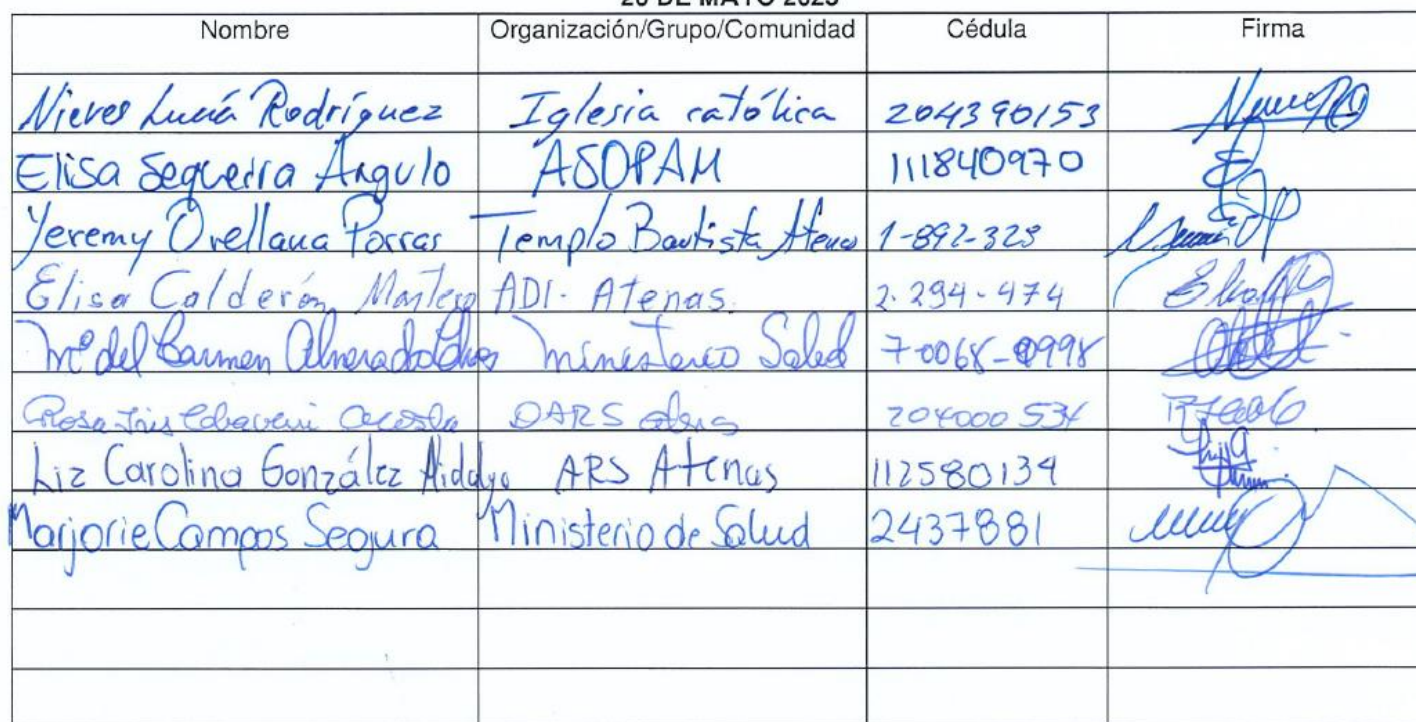 DE MAYO 2023
Nombre Organización/Grupo/Comunidad Cédula Firma
Nieves Lucía Rodríguez Iglesia católica 204390153
Elisa Sequeira Angulo ASOPAM 111840970
Yeremy Orellana Porras Templo Bautista Atenas 1-892-323
Elisa Calderón ADI. Atenas. 2.294.474
Mª del Carmen Ministerio Salud
Rosa Iris
Liz Carolina González Hidalgo ARS Atenas 112580134
Marjorie Campos Segura Ministerio de Salud 2437881